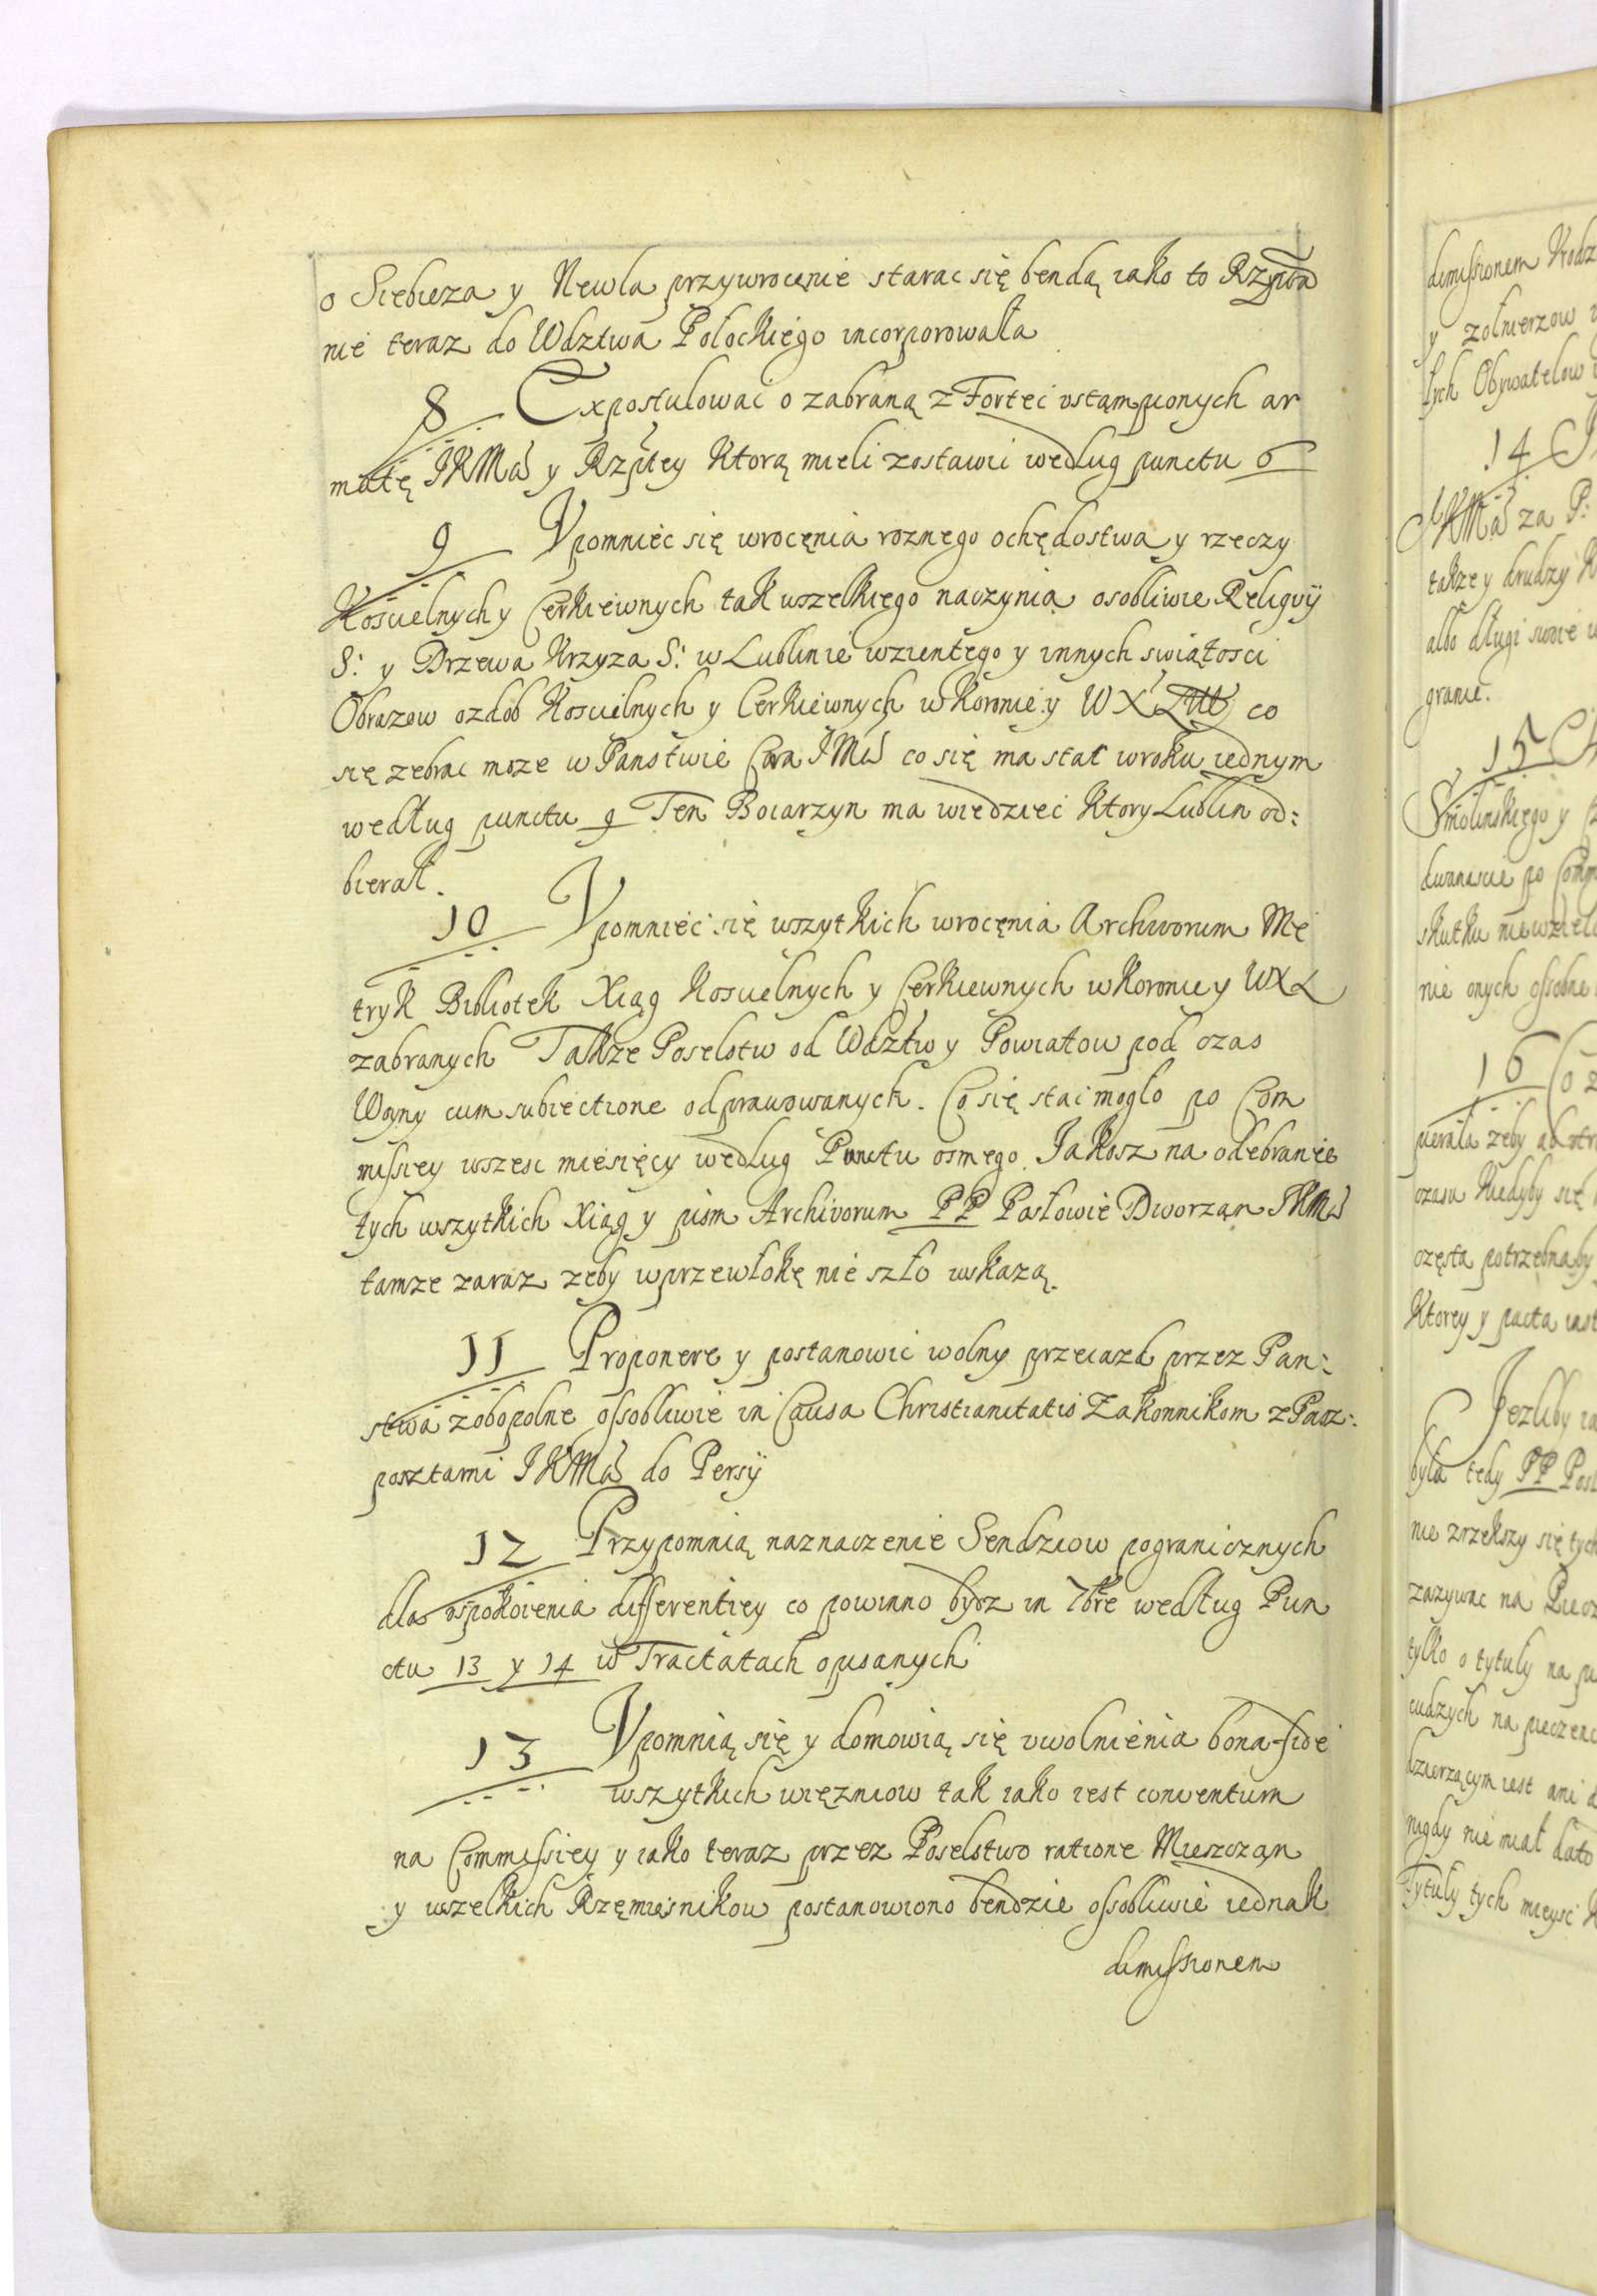 o Siebieza y Newla przywrocęnie starac się bendą iako to Rzptta
nie teraz do Wdztwa Połockiego incorporowała
8 Expostulowac o zabraną z Fortec vstąmpionych ar
matę JKMśċ y Rzptey Ktorą mieli zostawic według punctu 6
9 Vpomniec się wrocęnia roznego ochędostwa y rzeczy
Koscielnych y Cerkiewnych tak wszelkiego naczynia osobliwie Religvÿ
S: y Drzewa Krzyza S: w Lublinie wzientego y innych swiątosci
Obrazow ozdob Koscielnych y Cerkiewnych w Koronie y WX co
się zebrac moze w Panstwie Cara JMśċ co się ma stac w roku iednym
według punctu 9 Ten Boiarzyn ma wiedziec Ktory Lublin od:
bierał.
10 Vpomniec się wszytkich wrocęnia Archivorum Me
tryk Bibliotek Xiąg Koscielnych y Cerkiewnych w Koronie y WXL
zabranych Takze Poselstw od Wdztw y Powiatow pod czas
Woyny cum subiectione odprawowanych. Co się stac mogło po Com
missiey w szesc miesięcy według Punctu osmego. Jakosz na odebranie
tych wszytkich Xiąg y pism Archivorum PP Posłowie Dworzan JKMśċ
tamze zaraz zeby w przewłokę nie szło wskazą.
11 Proponere y postanowic wolny przeiazd przez Pan:
stwa zobopolne ossobliwie in Causa Christianitatis Zakonnikom z Pasz:
posztami JKMśċ do Persÿ
12 Przypomnią naznaczenie Sendziow pogranicznych
dla vspokoienia differentiey co powinno bydz in 7bre według Pun
ctu 13 y 14 w Tractatach opisanych
13 Vpomnią się y domowią się vwolnienia bona fide
wszytkich więzniow tak iako iest conventum
na Commissiey y iako teraz przez Poselstwo ratione Mieszczan
y wszelkich Rzęmiesnikow postanowiono bendzie ossobliwie iednak
dimissionem
dimissionem
y zołnierzow
tych Obywatelow
14
JKMśċ za P:
takze y drudzy
albo długi swoie
granie.
15
Smolinskiego y
dwanascie po
skutku
nie onych ossobne
16 Co
zeby
czasu kiedyby się
częsta potrzebna by
Ktorey y pacta
Jezliby
była tedy PP
nie zrzekszy się tych
zazywac na
tylko o tytuły na
cudzych na
iest ani
nigdy nie miał
Tytuły tych mieysc